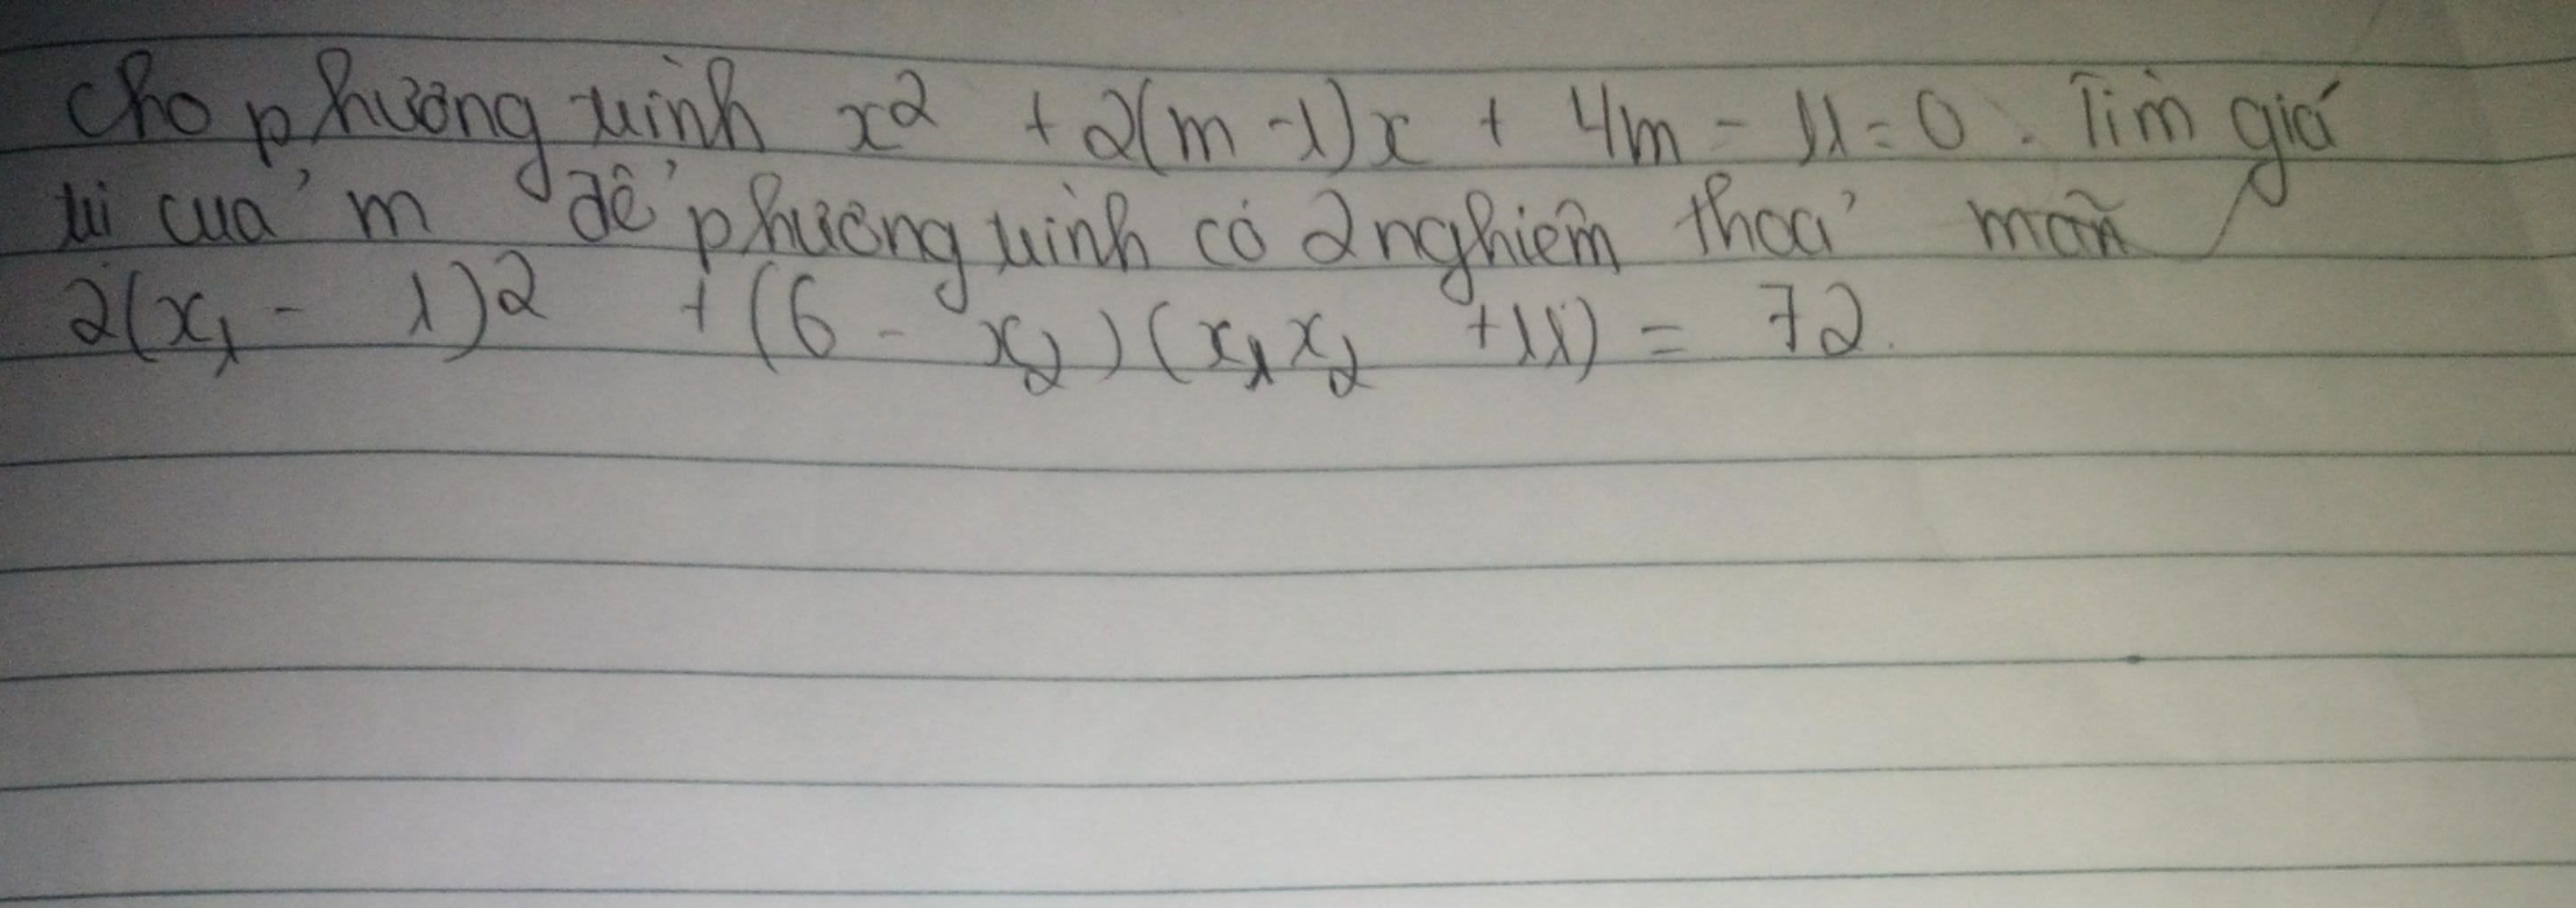 Cho phương trình x² + 2(m-1)x + 4m - 11 = 0. Tìm giá
trị của m để phương trình có 2 nghiệm thoả mãn
2(x₁ - 1)² + (6 - x₂)(x₁x₂ + 11) = 72.